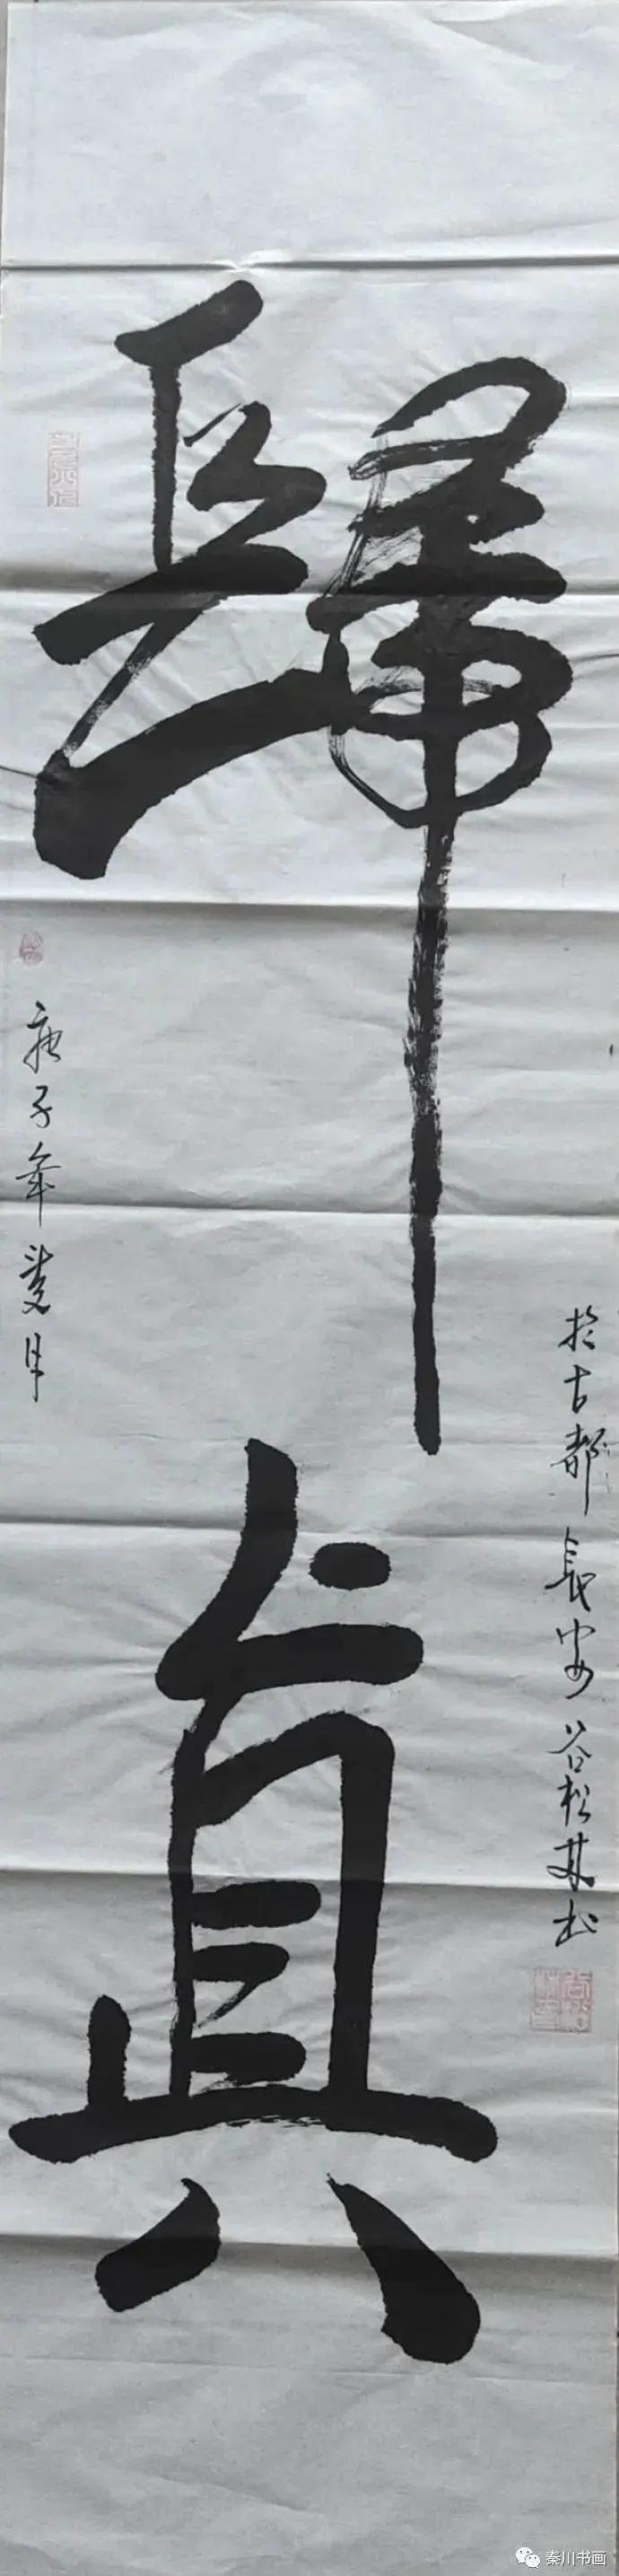 歸真
庚子年夏月
於古都長安谷松林书
秦川书画